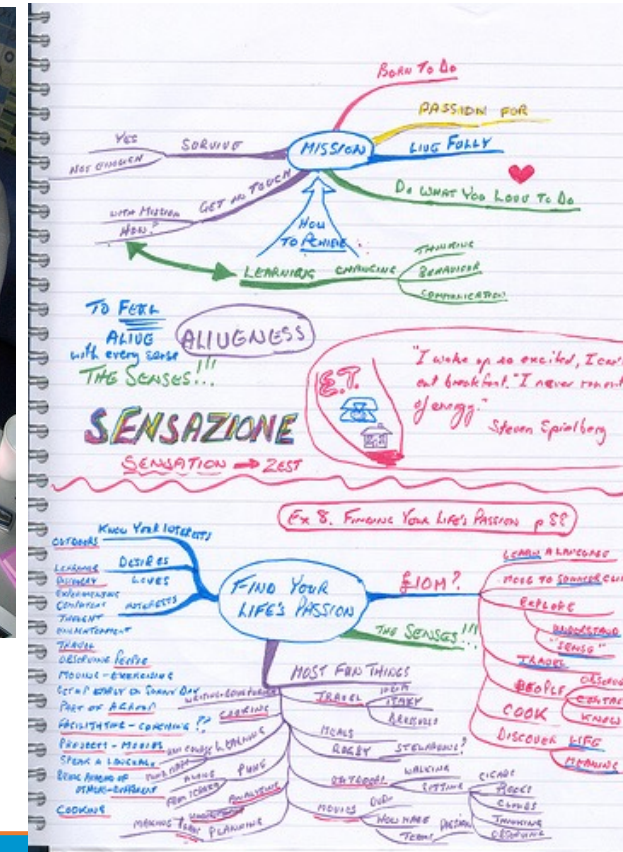 BORN TO DO
PASSION FOR
LIVE FULLY
DO WHAT YOU LOVE TO DO
MISSION
SURVIVE
YES
NOT ENOUGH
GET IN TOUCH
WITH MISSION
HOW?
HOW
TO ACHIEVE
LEARNING CHANGING
THINKING
BEHAVIOUR
COMMUNICATION
TO FEEL
ALIVE
with every sense
THE SENSES!!!
ALIVENESS
SENSAZIONE
SENSATION → ZEST
E.T.
"I wake up so excited, I can't
eat breakfast." I never run out
of energy."
Steven Spielberg
Ex 8. FINDING YOUR LIFE'S PASSION p 88
FIND YOUR
LIFE'S PASSION
KNOW YOUR INTERESTS
DESIRES
LOVES
INTERESTS
OUTDOORS
LEARNING
DISCOVERY
EXPERIMENTING
THOUGHT
ENLIGHTENMENT
TRAVEL
OBSERVING PEOPLE
MOVING - EXERCISING
GET UP EARLY ON SUNNY DAY
PART OF A GROUP
FACILITATING - COACHING??
PROJECTS - MOVIES
SPEAK A LANGUAGE
BEING AHEAD OF
OTHERS - DIFFERENT
COOKING
£10M?
LEARN A LANGUAGE
MOVE TO SUNNIER CLI
EXPLORE
UNDERSTAND
"SENSE"
TRAVEL
PEOPLE
OBSERVE
CONTACT
KNOW
COOK
DISCOVER LIFE
MEANING
THE SENSES!!!
MOST FUN THINGS
TRAVEL
INDIA
ITALY
BRUSSELS
MEALS
RUGBY
STEWARDING?
OUTDOORS
WALKING
SITTING
CIGARS
CLOUDS
THINKING
OBSERVING
MOVIES
DVD
HOW MADE
COOKING
LEARNING
MIND MAPS
ANALYSING
MAKING
PLANNING